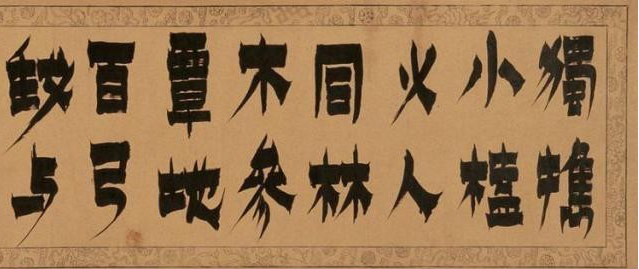 獨擕
小榼
火人
同林
木參
覃地
百弓
与